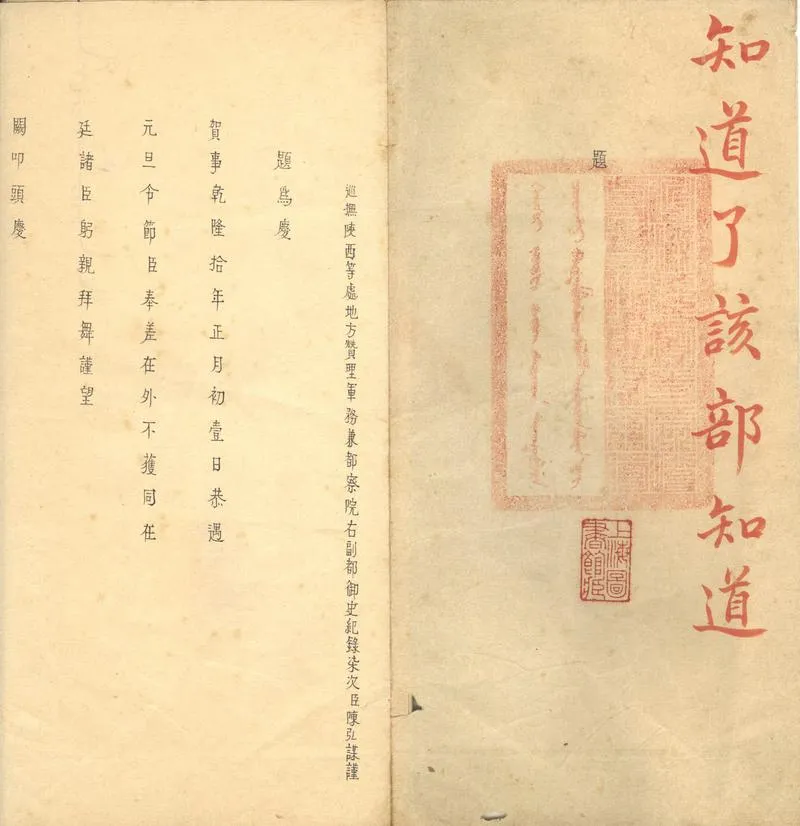 知道了該部知道
題
上海圖
書館藏
巡撫陝西等處地方贊理軍務兼都察院右副都御史紀錄柒次臣陳弘謀謹
題爲慶
賀事乾隆拾年正月初壹日恭遇
元旦令節臣奉差在外不獲同在
廷諸臣躬親拜舞謹望
闕叩頭慶